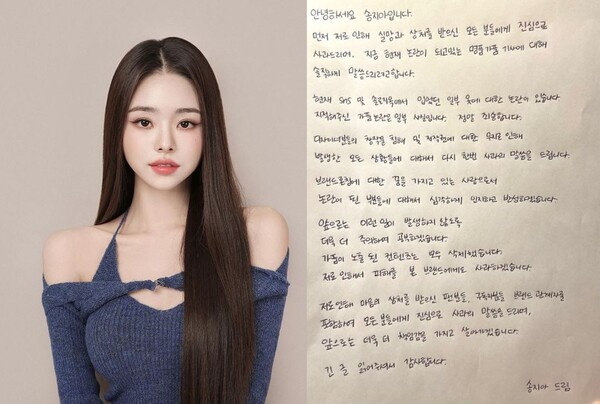 안녕하세요 송지아입니다.
먼저 저로 인해 실망과 상처를 받으신 모든 분들에게 진심으로
사과드리며, 지금 현재 논란이 되고있는 명품가품 기사에 대해
솔직하게 말씀드리려고합니다.
현재 SNS 및 솔로지옥에서 입었던 일부 옷에 대한 논란이 있습니다
지적해주신 가품논란은 일부 사실입니다. 정말 죄송합니다.
디자이너분들의 창작물 침해 및 저작권에 대한 무지로 인해
발생한 모든 상황들에 대해서 다시 한번 사과의 말씀을 드립니다.
브랜드론칭에 대한 꿈을 가지고 있는 사람으로서
논란이 된 부분들에 대해서 심각하게 인지하고 반성하겠습니다.
앞으로는 이런 일이 발생하지 않도록
더욱 더 주의하며 공부하겠습니다.
가품이 노출 된 컨텐츠는 모두 삭제했습니다.
저로 인해서 피해를 본 브랜드에게도 사과하겠습니다.
저로인해 마음의 상처를 받으신 팬분들, 구독자분들 브랜드 관계자를
포함하여 모든 분들에게 진심으로 사과의 말씀을 드리며,
앞으로는 더욱 더 책임감을 가지고 살아가겠습니다.
긴 글 읽어주셔서 감사합니다.
송지아 드림